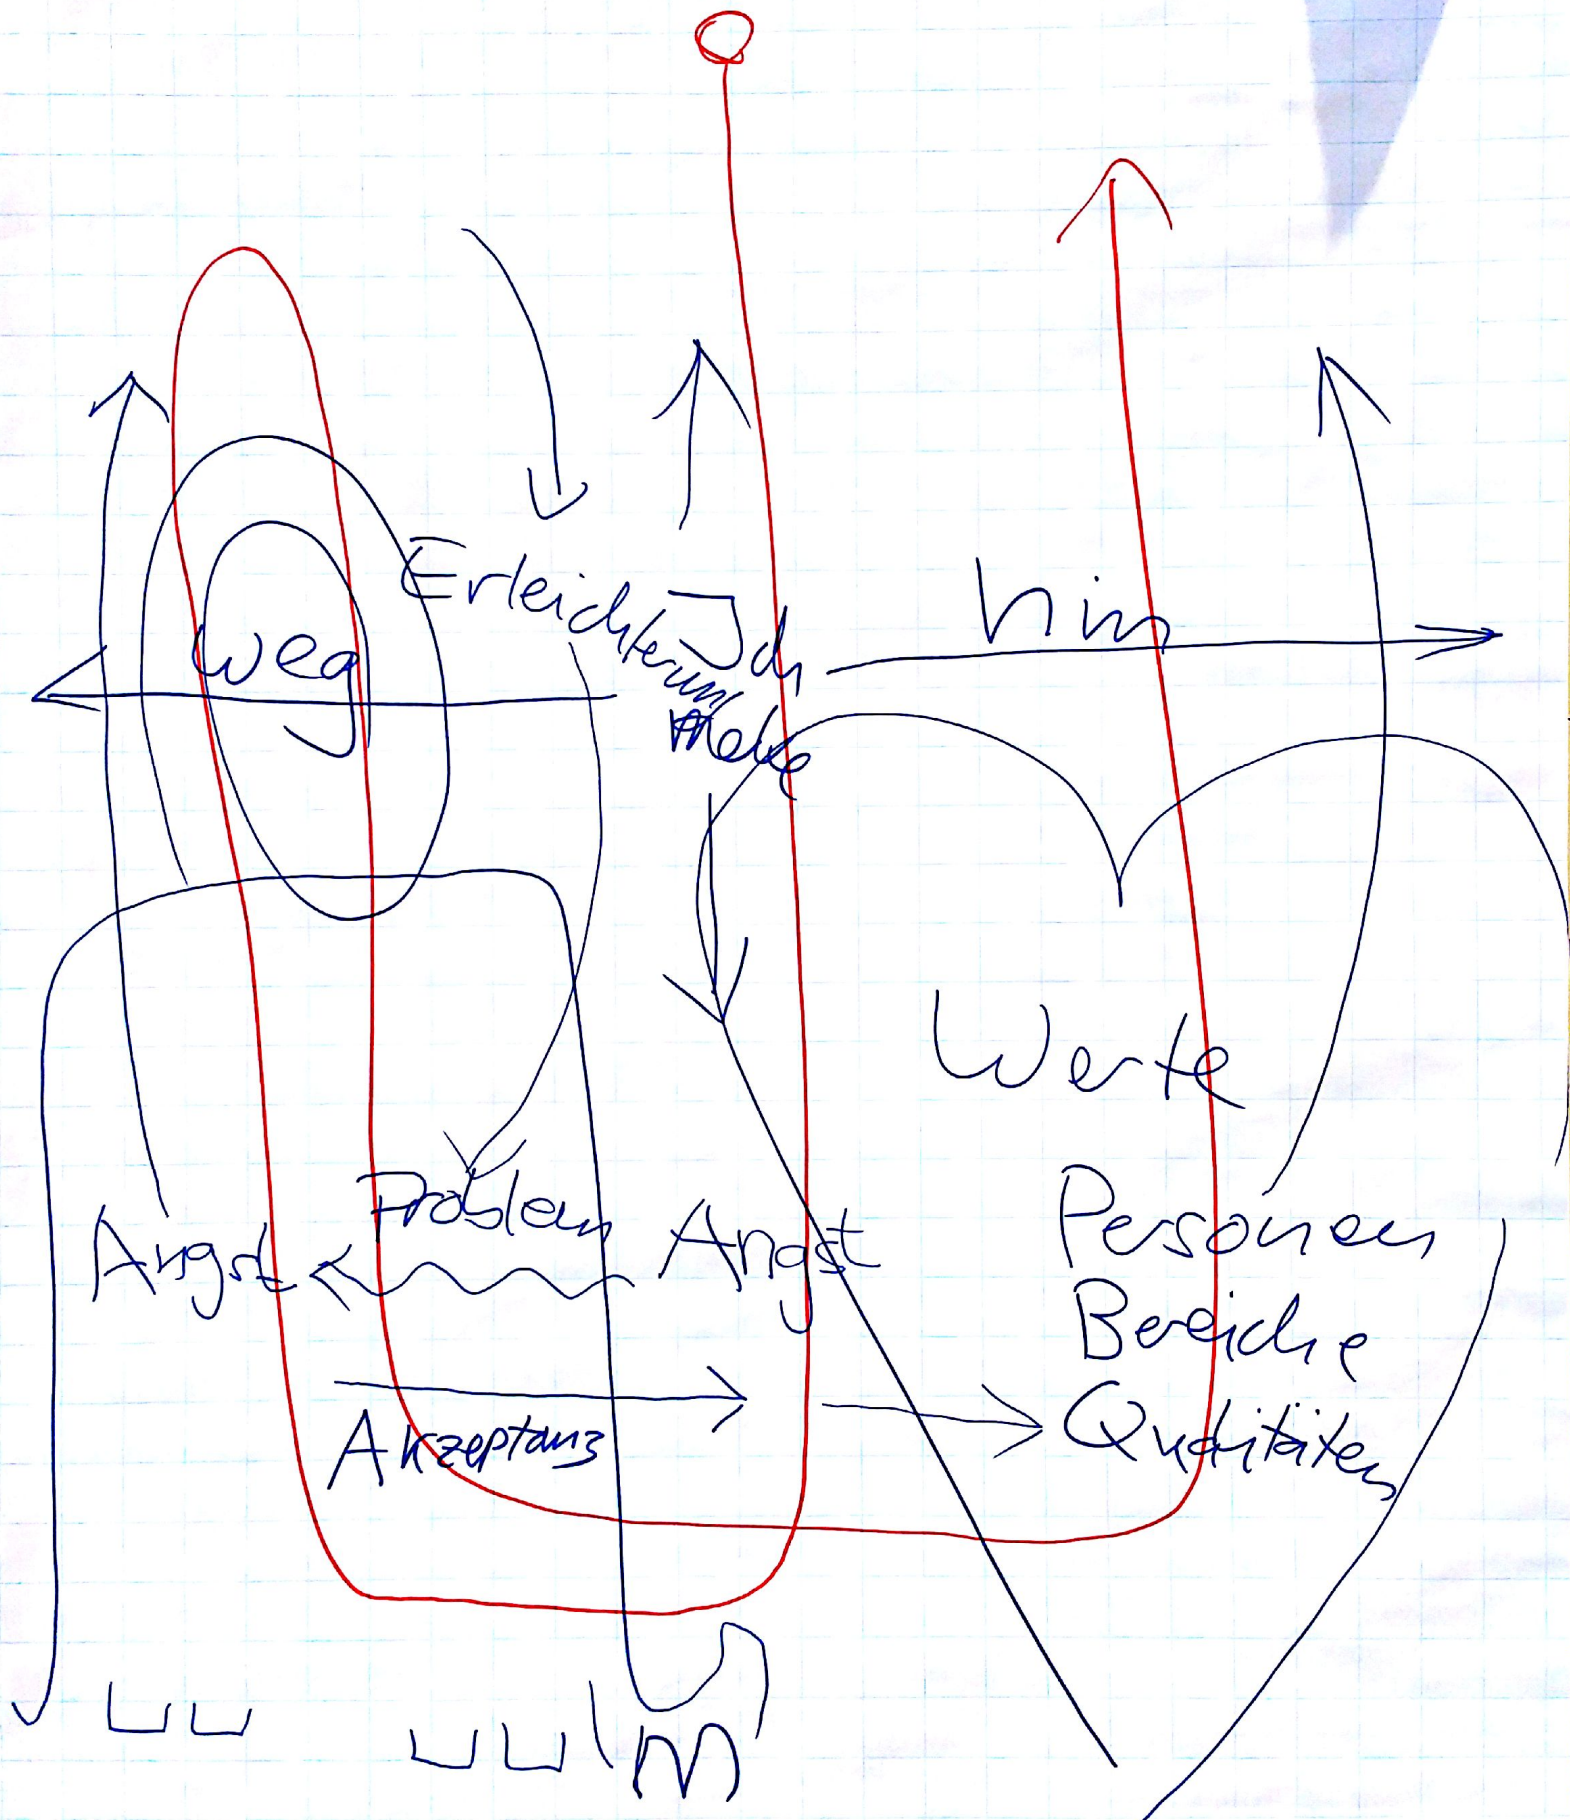 Erleichterung
Ich
merke
hin
weg
Werte
Problem
Angst
Angst
Personen
Bereiche
Qualitäten
Akzeptanz